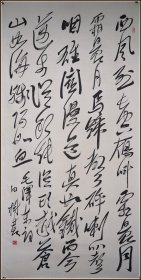 西风烈长空雁叫霜晨月
霜晨月马蹄声碎喇叭声
咽雄关漫道真如铁而今
迈步从头越从头越苍
山如海残阳如血毛泽东词